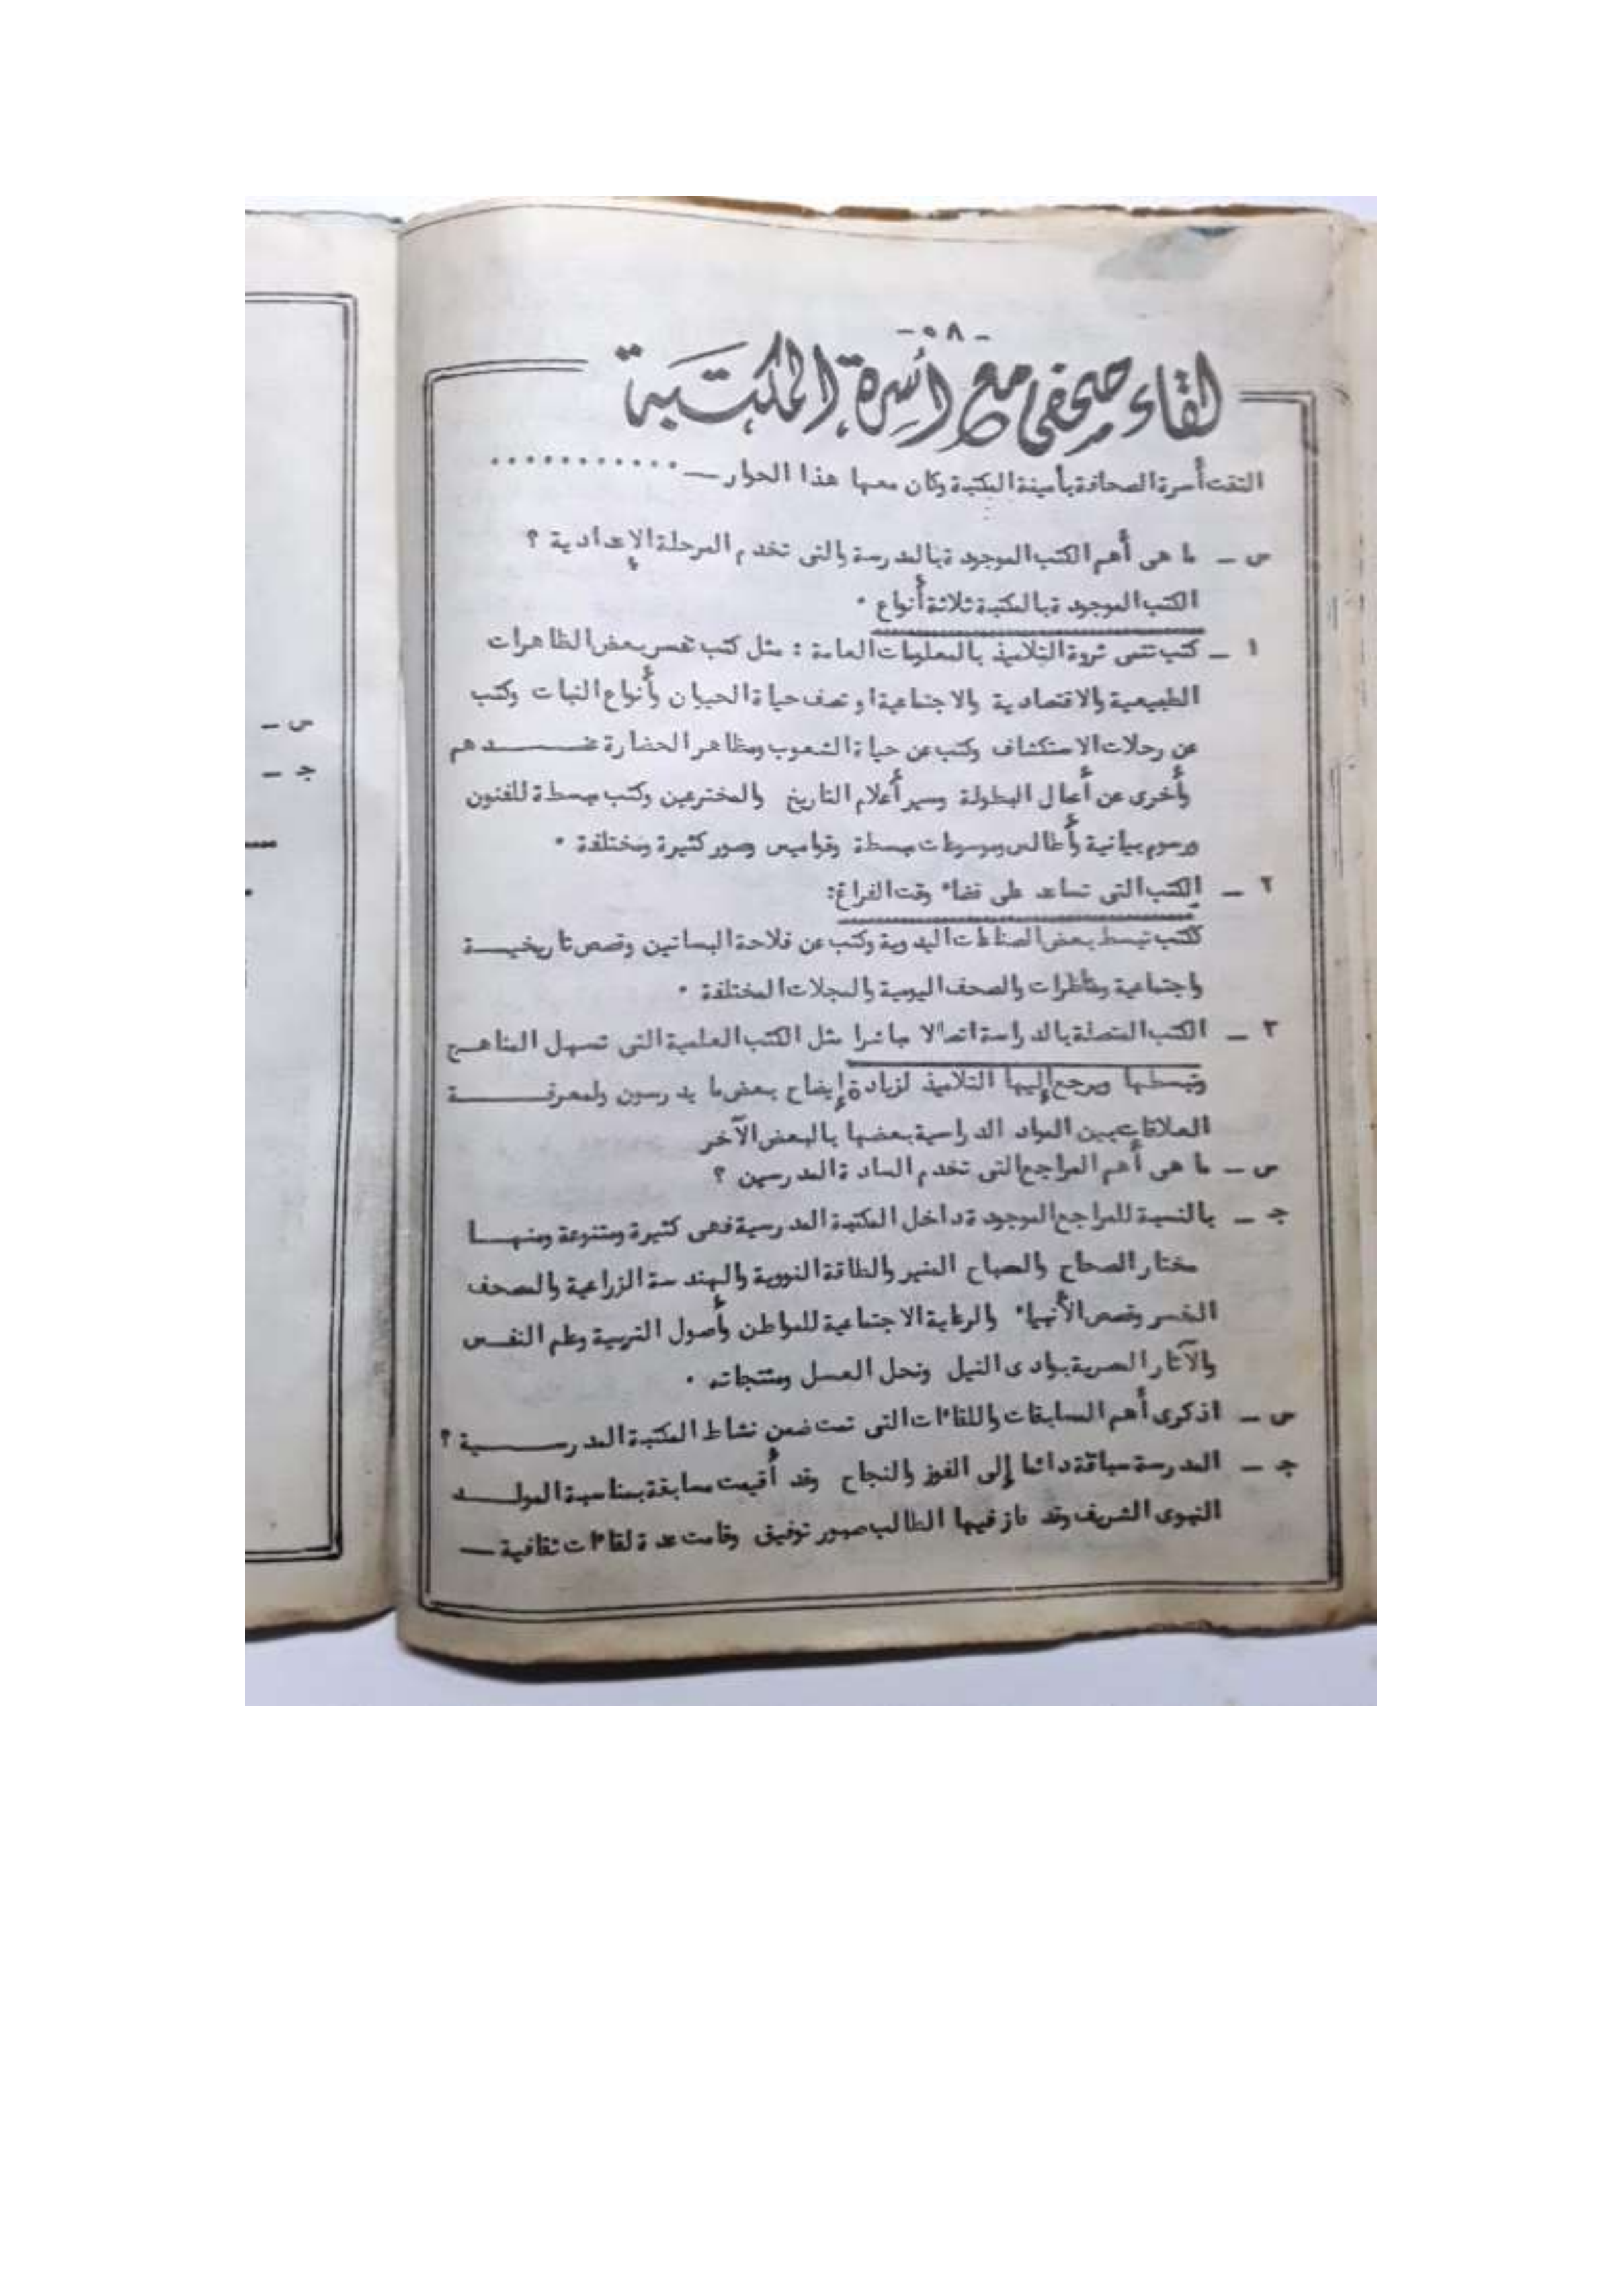 - ٥٨ -
لقاء صحفى مع أسرة المكتبة
التقت أسرة الصحافة بأمينة المكتبة وكان معها هذا الحوار — ...........
س — ما هى أهم الكتب الموجودة بالمدرسة والتى تخدم المرحلة الإعدادية ؟
الكتب الموجودة بالمكتبة ثلاثة أنواع .
١ — كتب تنمى ثروة التلاميذ بالمعلومات العامة : مثل كتب تفسر بعض الظاهرات
الطبيعية والاقتصادية والاجتماعية او تصف حياة الحيوان وأنواع النبات وكتب
عن رحلات الاستكشاف وكتب عن حياة الشعوب ومظاهر الحضارة عندهم
وأخرى عن أعمال البطولة وسير أعلام التاريخ والمخترعين وكتب مبسطة للفنون
ورسوم بيانية وأطالس وموسوعات مبسطة وقواميس وصور كثيرة ومختلفة .
٢ — الكتب التى تساعد على قضاء وقت الفراغ :
ككتب تبسط بعض الصناعات اليدوية وكتب عن فلاحة البساتين وقصص تاريخية
واجتماعية ومناظرات والصحف اليومية والمجلات المختلفة .
٣ — الكتب المتصلة بالدراسة اتصالا مباشرا مثل الكتب العلمية التى تسهل المناهج
وتبسطها ويرجع إليها التلاميذ لزيادة إيضاح بعض ما يدرسون ولمعرفة
العلاقات بين المواد الدراسية بعضها بالبعض الآخر
س — ما هى أهم المراجع التى تخدم السادة المدرسين ؟
جـ — بالنسبة للمراجع الموجودة داخل المكتبة المدرسية فهى كثيرة ومتنوعة ومنها
مختار الصحاح والمصباح المنير والطاقة النووية والهندسة الزراعية والمصحف
المفسر وقصص الأنبياء والرعاية الاجتماعية للمواطن وأصول التربية وعلم النفس
والآثار المصرية بوادى النيل ونحل العسل ومنتجاته .
س — اذكرى أهم المسابقات واللقاءات التى تمت ضمن نشاط المكتبة المدرسية ؟
جـ — المدرسة سباقة دائما إلى الفوز والنجاح وقد أقيمت مسابقة بمناسبة المولد
النبوى الشريف وقد فاز فيها الطالب توفيق وقامت عدة لقاءات ثقافية —
س —
جـ —